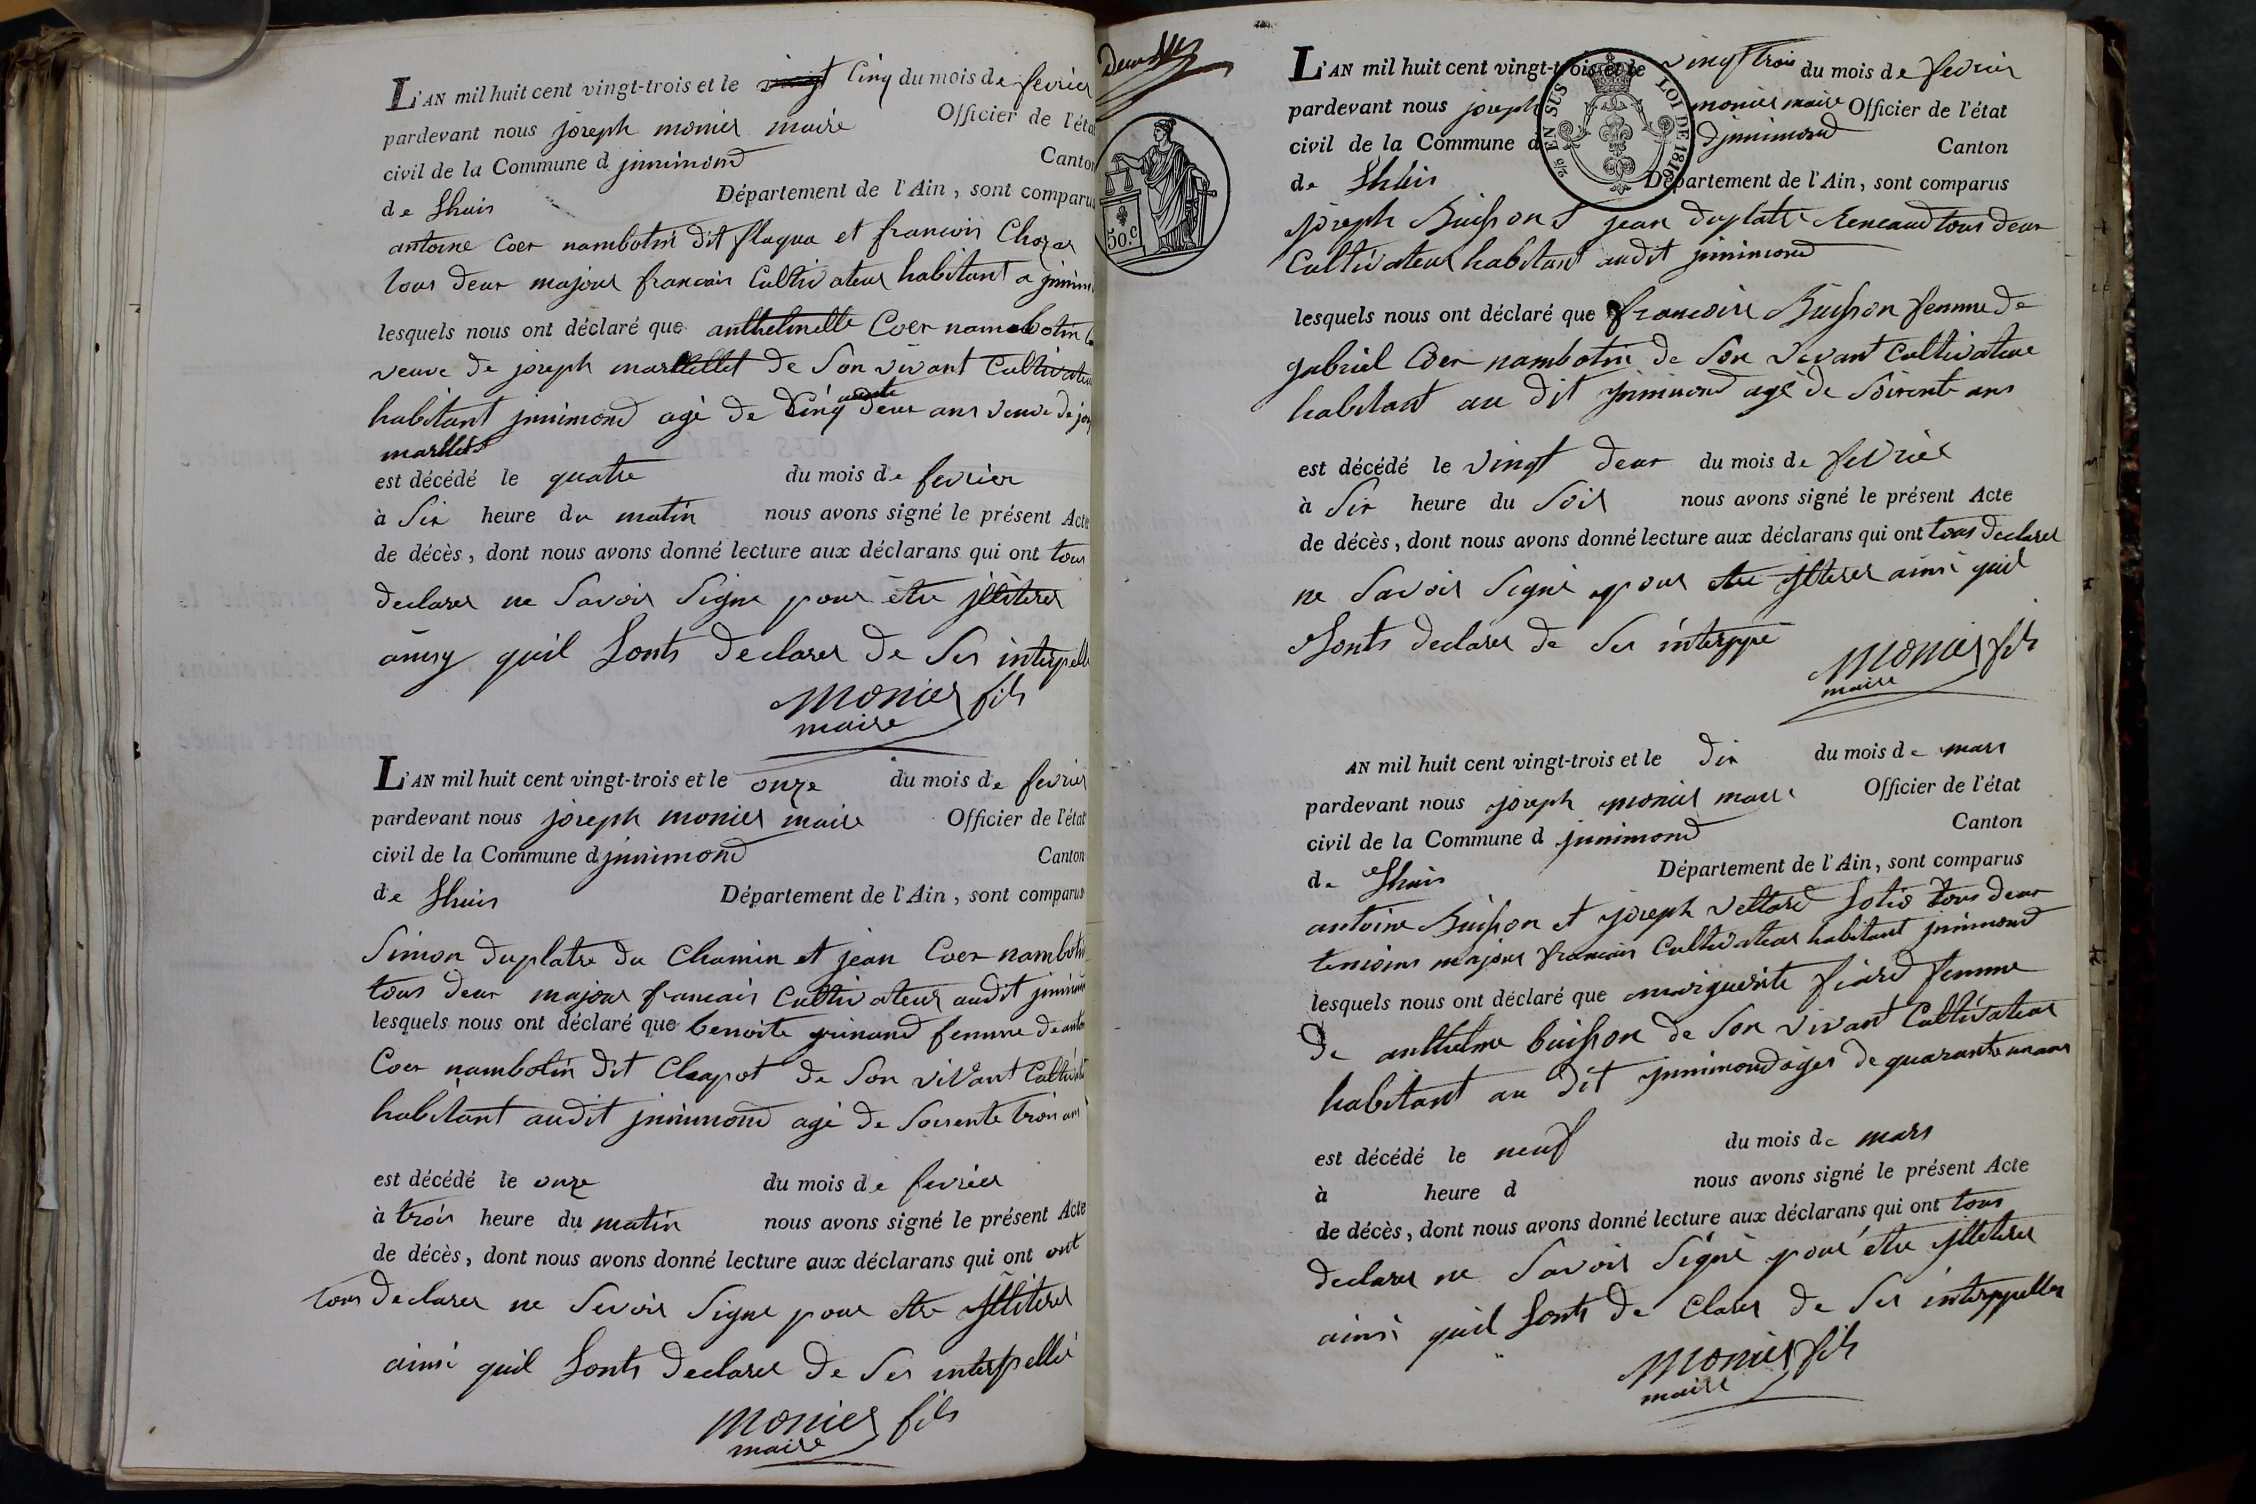 L'AN mil huit cent vingt-trois et le Cinq du mois de fevrier
pardevant nous joseph monier maire Officier de l'état
civil de la Commune d jnnimond Canton
de Lhuis Département de l'Ain, sont comparus
antoine Coer nambotin dit flaqua et francois Chozas
tous deux majeur francais Cultivateur habitant a jnnim
lesquels nous ont déclaré que anthelmette Coer nambotin
veuve de joseph marttellet de Son vivant Cultivateu
habitant jnnimond agé de Cinq deux ans veuve de jos
marttelet
est décédé le quatre du mois de fevrier
à Six heure du matin nous avons signé le présent Acte
de décès, dont nous avons donné lecture aux déclarans qui ont tous
declarer ne Savoir Signe pour être jlliterer
ainsy quil Lonts declarer de Ses interpelle
monier fils
maire
L'AN mil huit cent vingt-trois et le onze du mois de fevrier
pardevant nous joseph monier maire Officier de l'état
civil de la Commune d jnnimond Canton
de Lhuis Département de l'Ain, sont comparus
Simon duplatre du Chamin et jean Coer nambotin
tous deux majeur francais Cultivateur audit jnnimon
lesquels nous ont déclaré que benoite jninand femme de anto
Coer nambotin dit Clapot de Son vivant Cultiv
habitant audit jnnimond agé de Soisente trois ans
est décédé le onze du mois de fevrier
à trois heure du matin nous avons signé le présent Acte
de décès, dont nous avons donné lecture aux déclarans qui ont ont
tous declarer ne Sevoir Signe pour etre jlliterer
ainsi quil Lonts declarer de Ses interpellé
monier fils
maire
50.C
L'AN mil huit cent vingt-trois et le vingt trois du mois de fevrier
EN SUS LOI DE 1816
pardevant nous joseph monier maire Officier de l'état
civil de la Commune d djnnimond Canton
de Lhuis Département de l'Ain, sont comparus
joseph Buisson et jean duplatre Reneaud tous deux
Cultivateur habitant audit jnnimond
lesquels nous ont déclaré que francoise Buisson femme de
gabriel Coer nambotin de Son vivant Cultivateur
habitant au dit jnnimond agé de Soisente ans
est décédé le vingt deux du mois de fevrier
à Six heure du Soir nous avons signé le présent Acte
de décès, dont nous avons donné lecture aux déclarans qui ont tous declarer
ne Savoir Signé pour etre jlliterer ainsi quil
Lonts declarer de Ses interppe
monier fils
maire
AN mil huit cent vingt-trois et le dix du mois de mars
pardevant nous joseph monier maire Officier de l'état
civil de la Commune d jnnimond Canton
de Lhuis Département de l'Ain, sont comparus
antoine Buisson et joseph vettard Lotis tous deux
temoins majeur francais Cultivateur habitant jnnimond
lesquels nous ont déclaré que marguerite fiard femme
de anthelme buisson de Son vivant Cultivateur
habitant au dit jnnimond ager de quarante un ans
est décédé le neuf du mois de mars
à heure d nous avons signé le présent Acte
de décès, dont nous avons donné lecture aux déclarans qui ont tous
declarer ne Savoir Signé pour être jlliterer
ainsi quil Lonts de Clarer de Ses interppeller
monier fils
maire